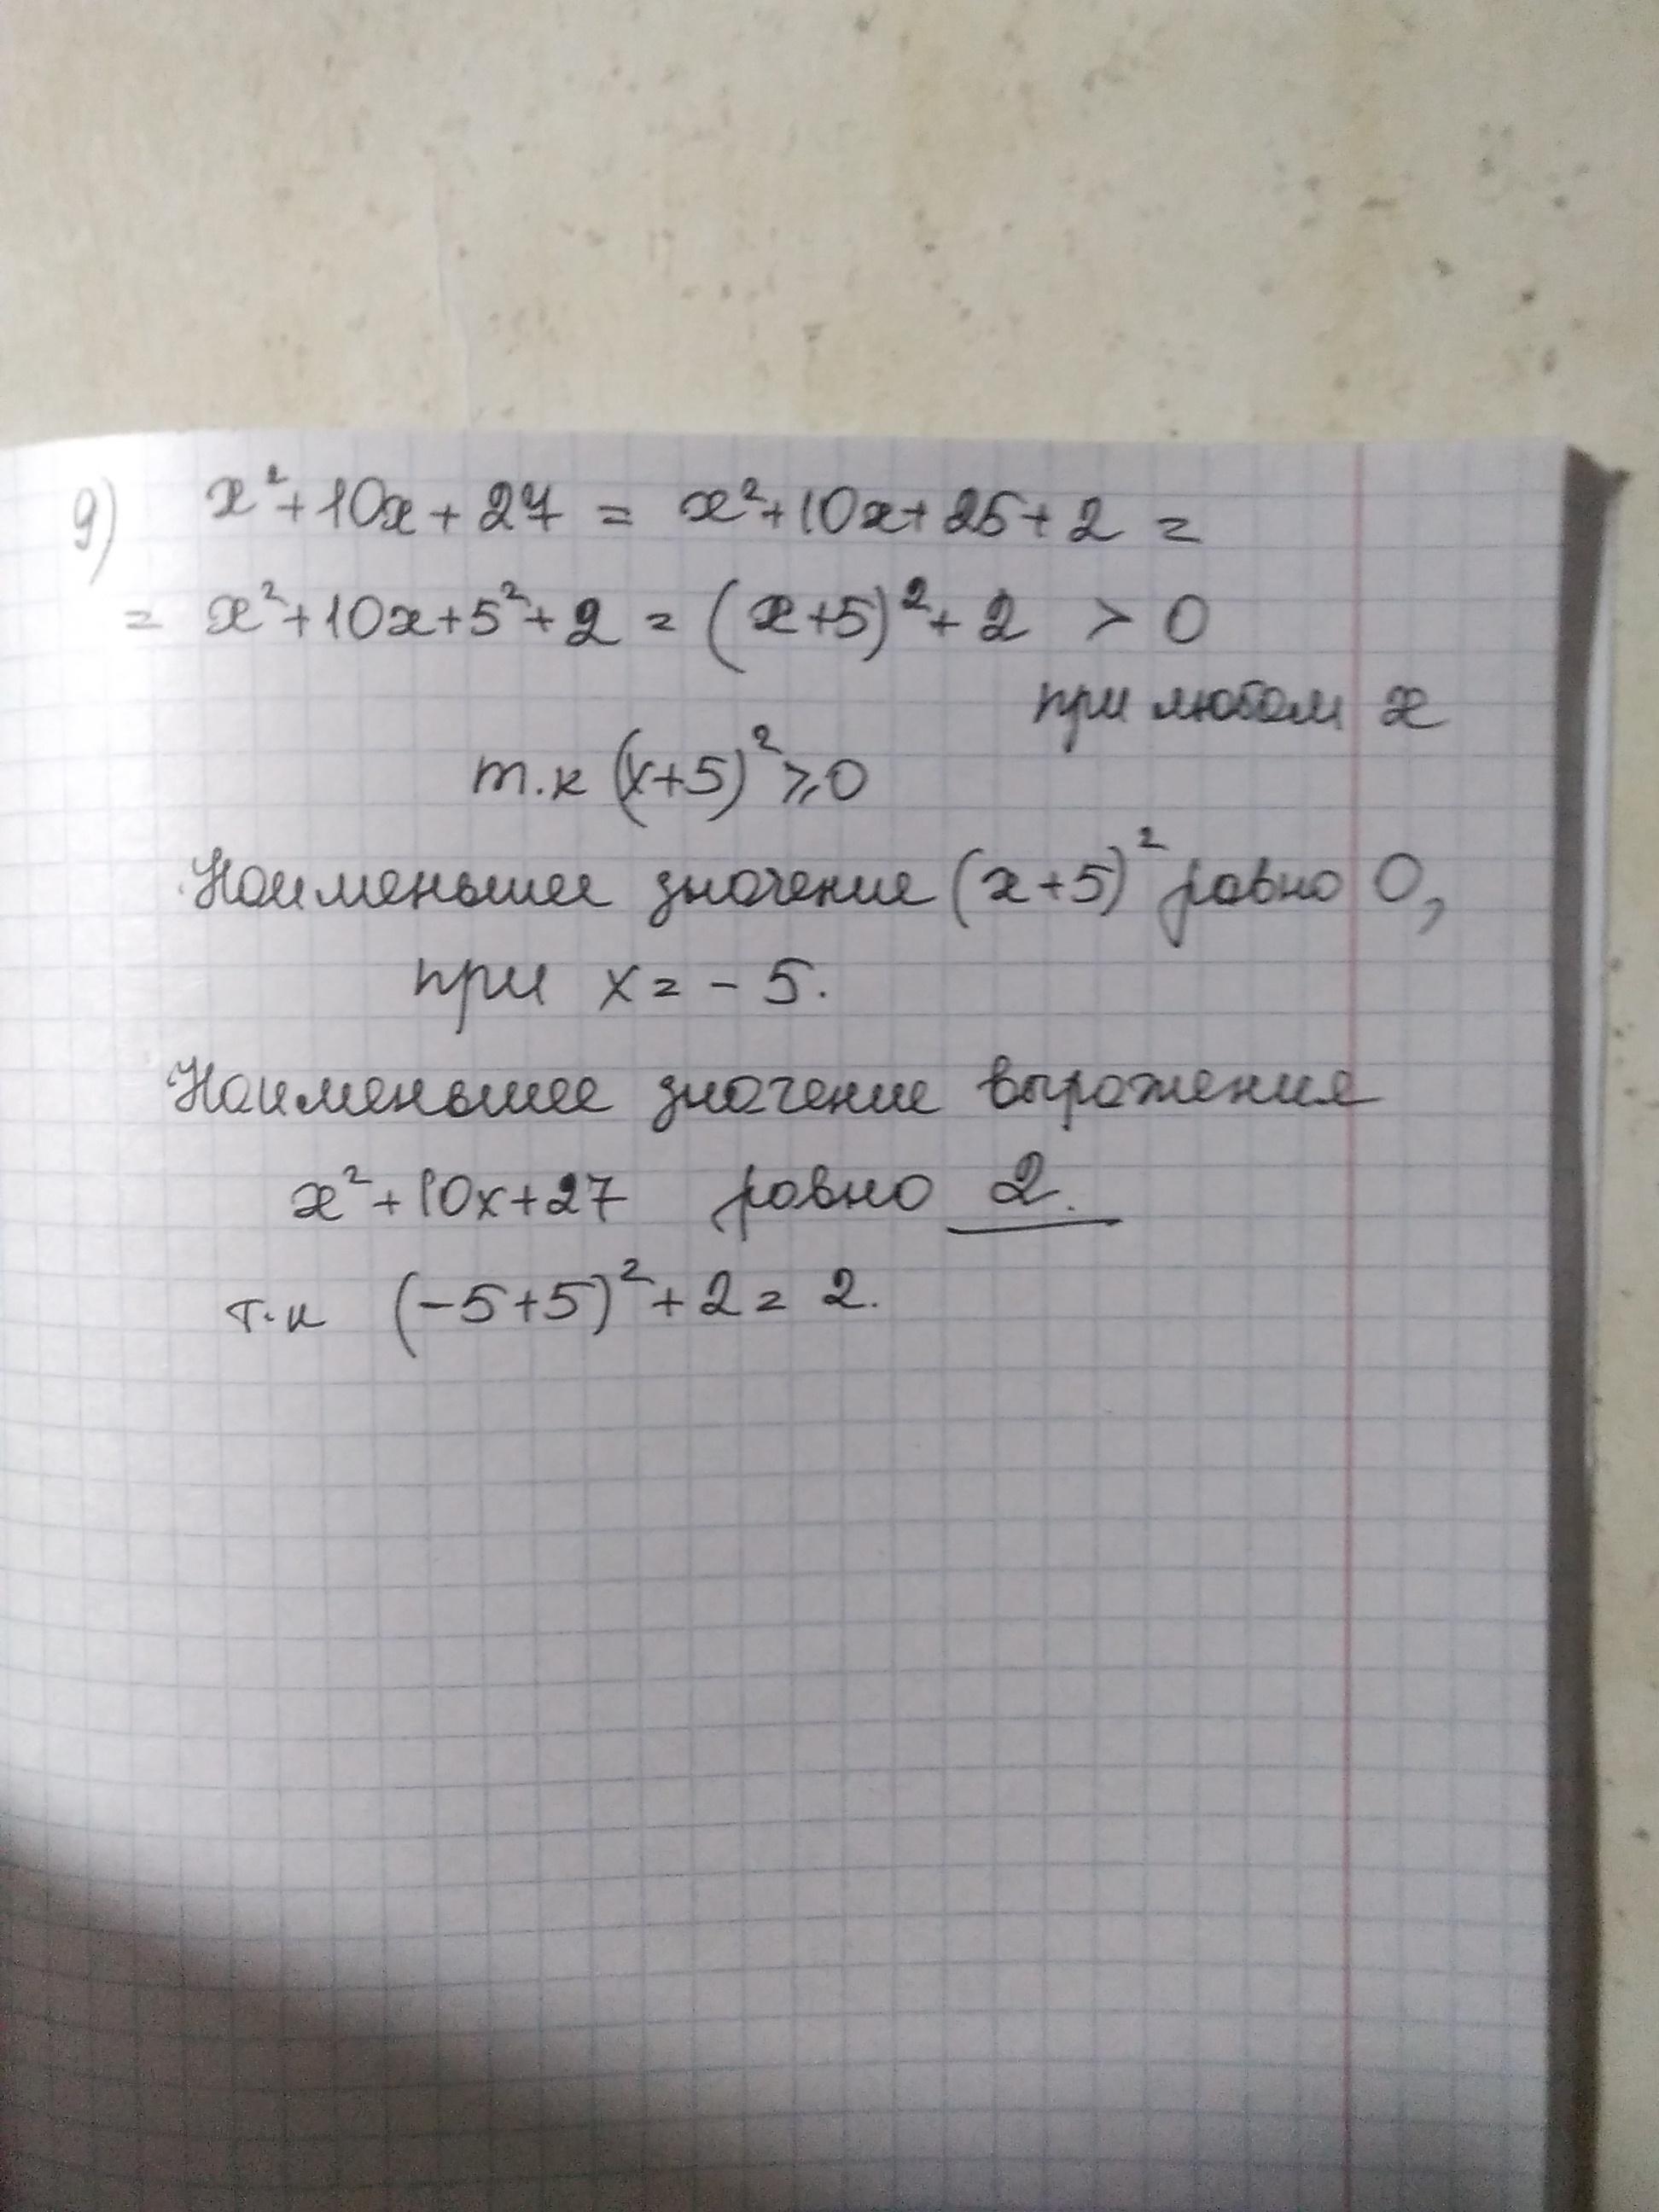 9) x²+10x+27 = x²+10x+25+2 =
= x²+10x+5²+2 = (x+5)²+2 > 0
при любом x
т.к (x+5)² ⩾ 0
Наименьшее значение (x+5)² равно 0,
при x = -5.
Наименьшее значение выражения
x²+10x+27 равно 2.
т.к (-5+5)²+2 = 2.